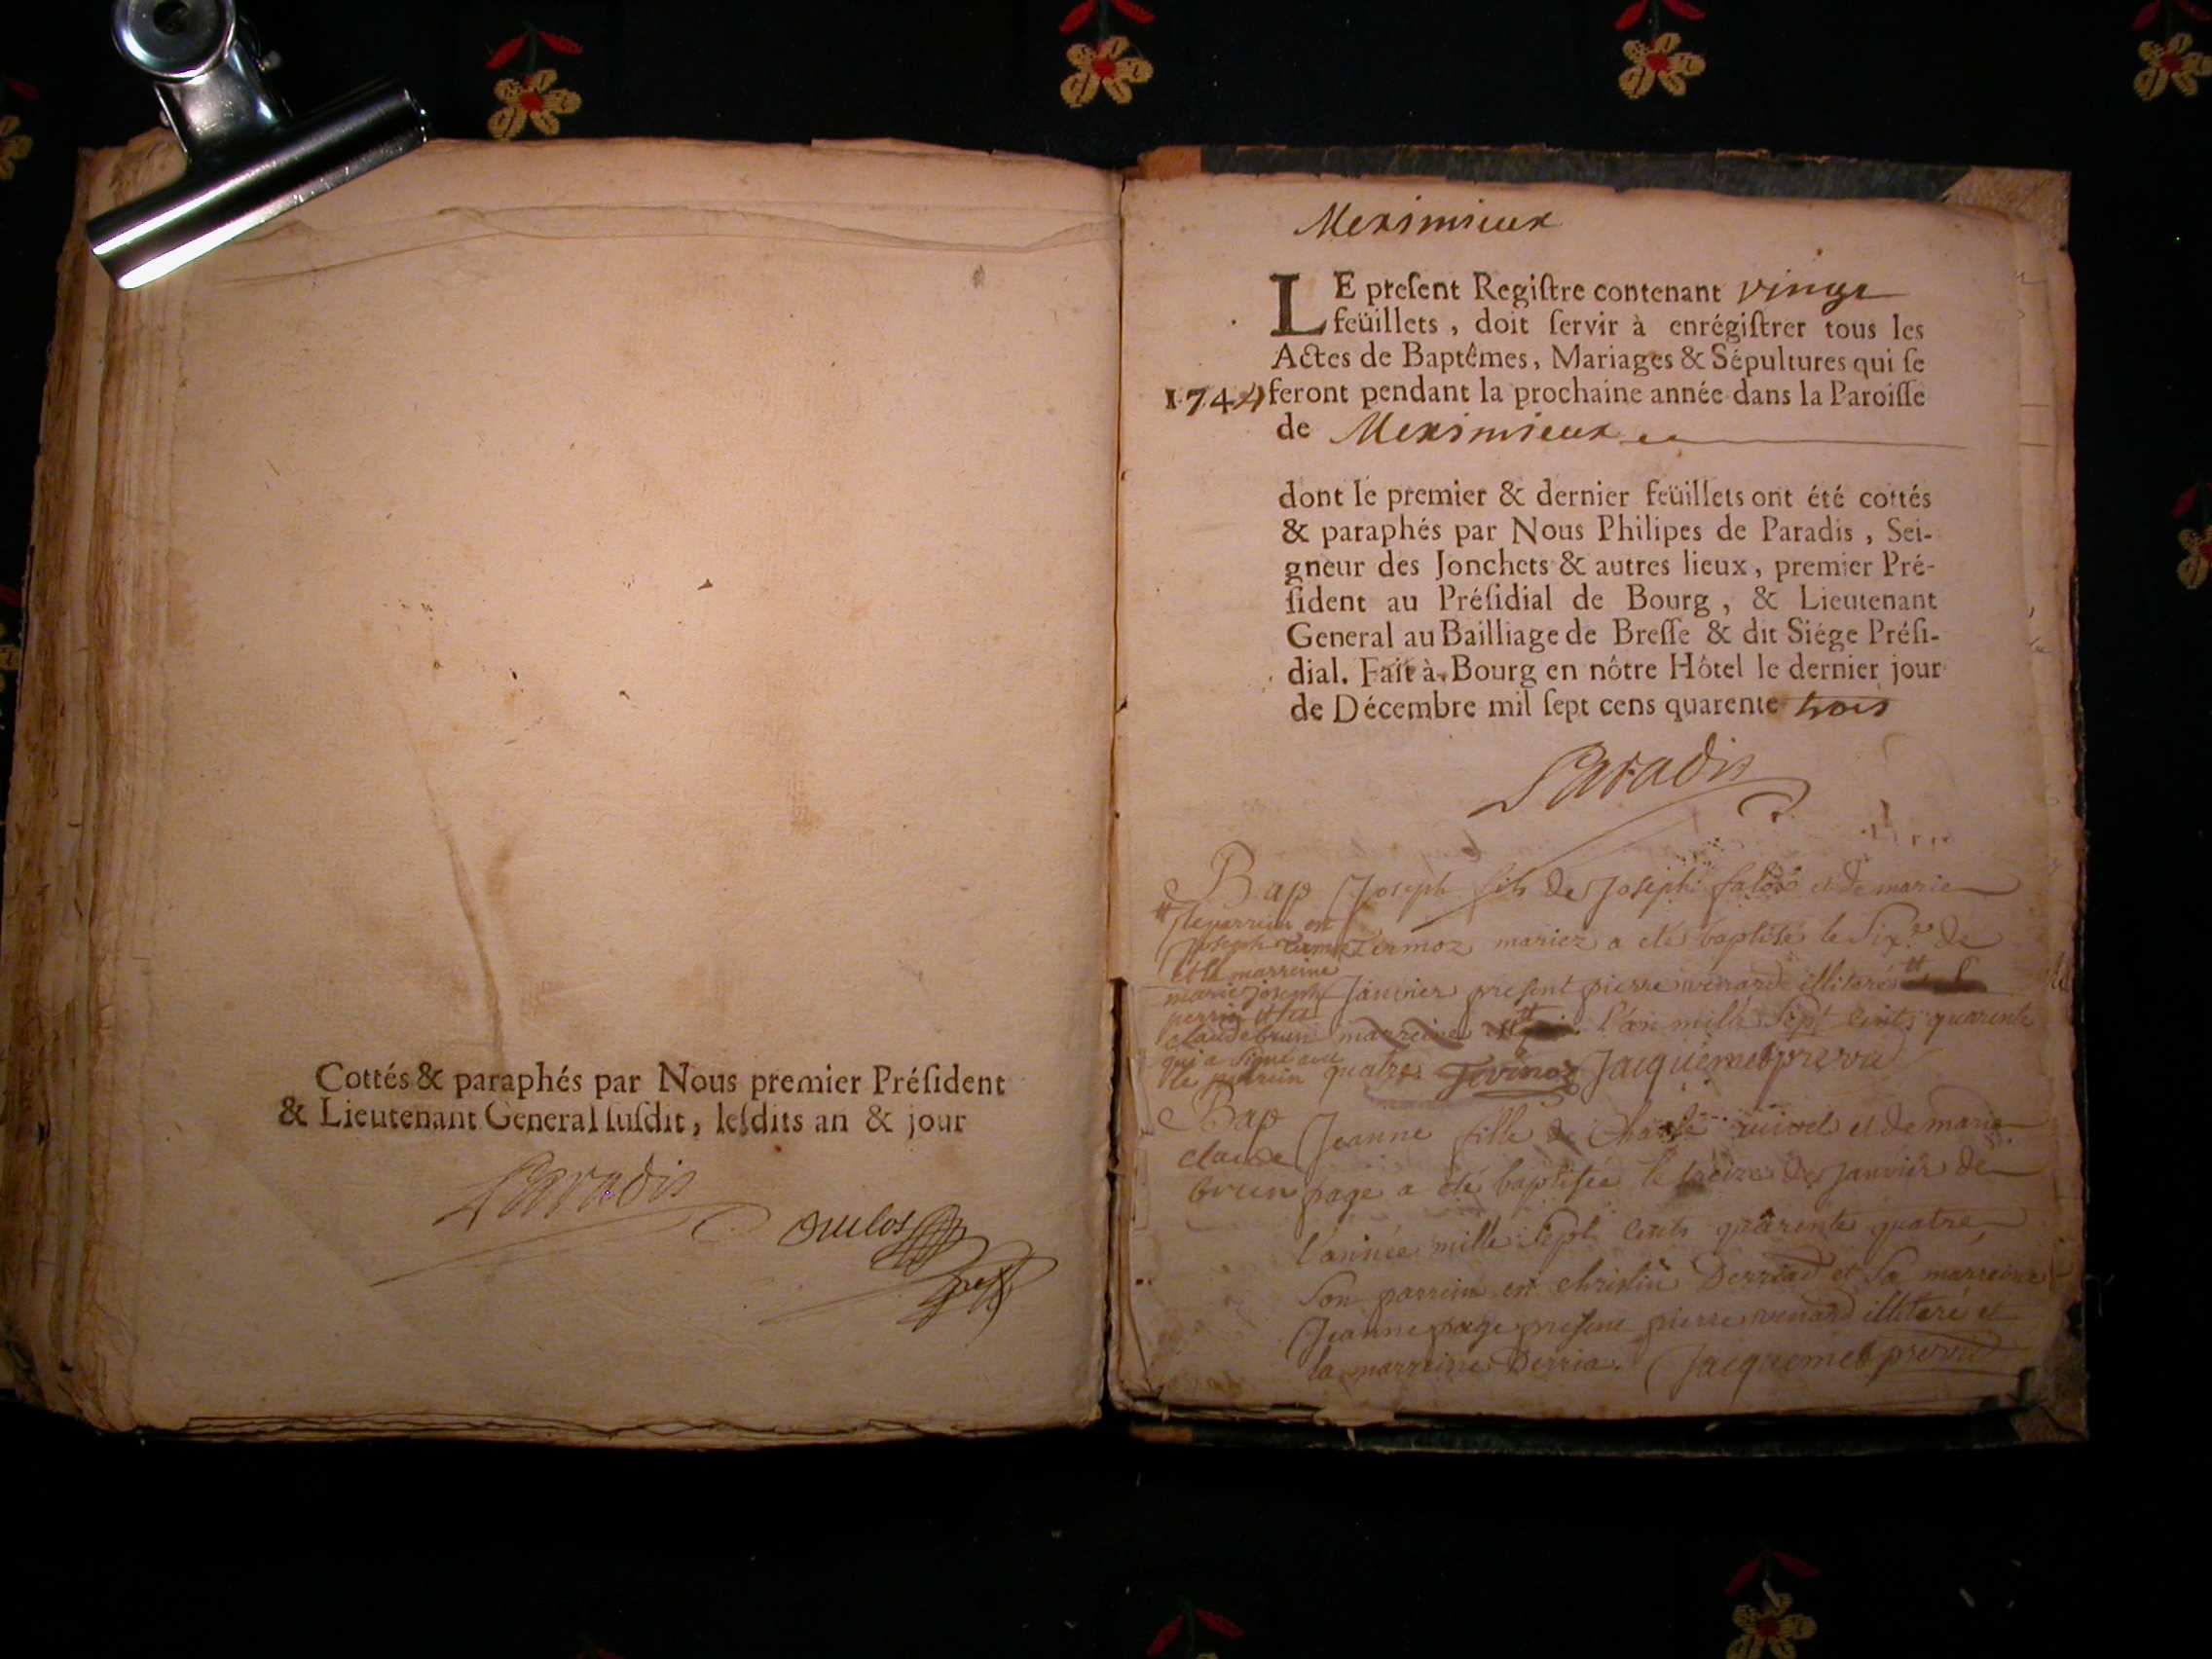 Cottés & paraphés par Nous premier Préſident
& Lieutenant General ſuſdit, leſdits an & jour
Paradis
Meximieux
LE preſent Regiſtre contenant vingt
feüillets, doit ſervir à enrégiſtrer tous les
Actes de Baptêmes, Mariages & Sépultures qui ſe
1744 feront pendant la prochaine année dans la Paroiſſe
de Meximieux
dont le premier & dernier feüillets ont été cottés
& paraphés par Nous Philipes de Paradis, Sei-
gneur des Jonchets & autres lieux, premier Pré-
ſident au Préſidial de Bourg, & Lieutenant
General au Bailliage de Breſſe & dit Siége Préſi-
dial. Fait à Bourg en nôtre Hôtel le dernier jour
de Décembre mil ſept cens quarente trois
Paradis
Bap
le parrein est
joseph
et la marreine
marie joseph
claude brun
qui a signé avec
le parrein
Joseph fils de Joseph et de marie
Termoz mariez a eté baptisé le Six.e de
Janvier present pierre venard illiteré
marreine l'an mille Sept cents quarente
quatre. Jacquemet
Bap
claude
brun
Jeanne fille de Charle et de marie
page a eté baptisée le treize de Janvier de
l'année mille Sept cents quarente quatre,
Son parrein est christin Derriad et Sa marreine
Jeanne page present pierre venard illiteré et
la marreine Derria. Jacquemet